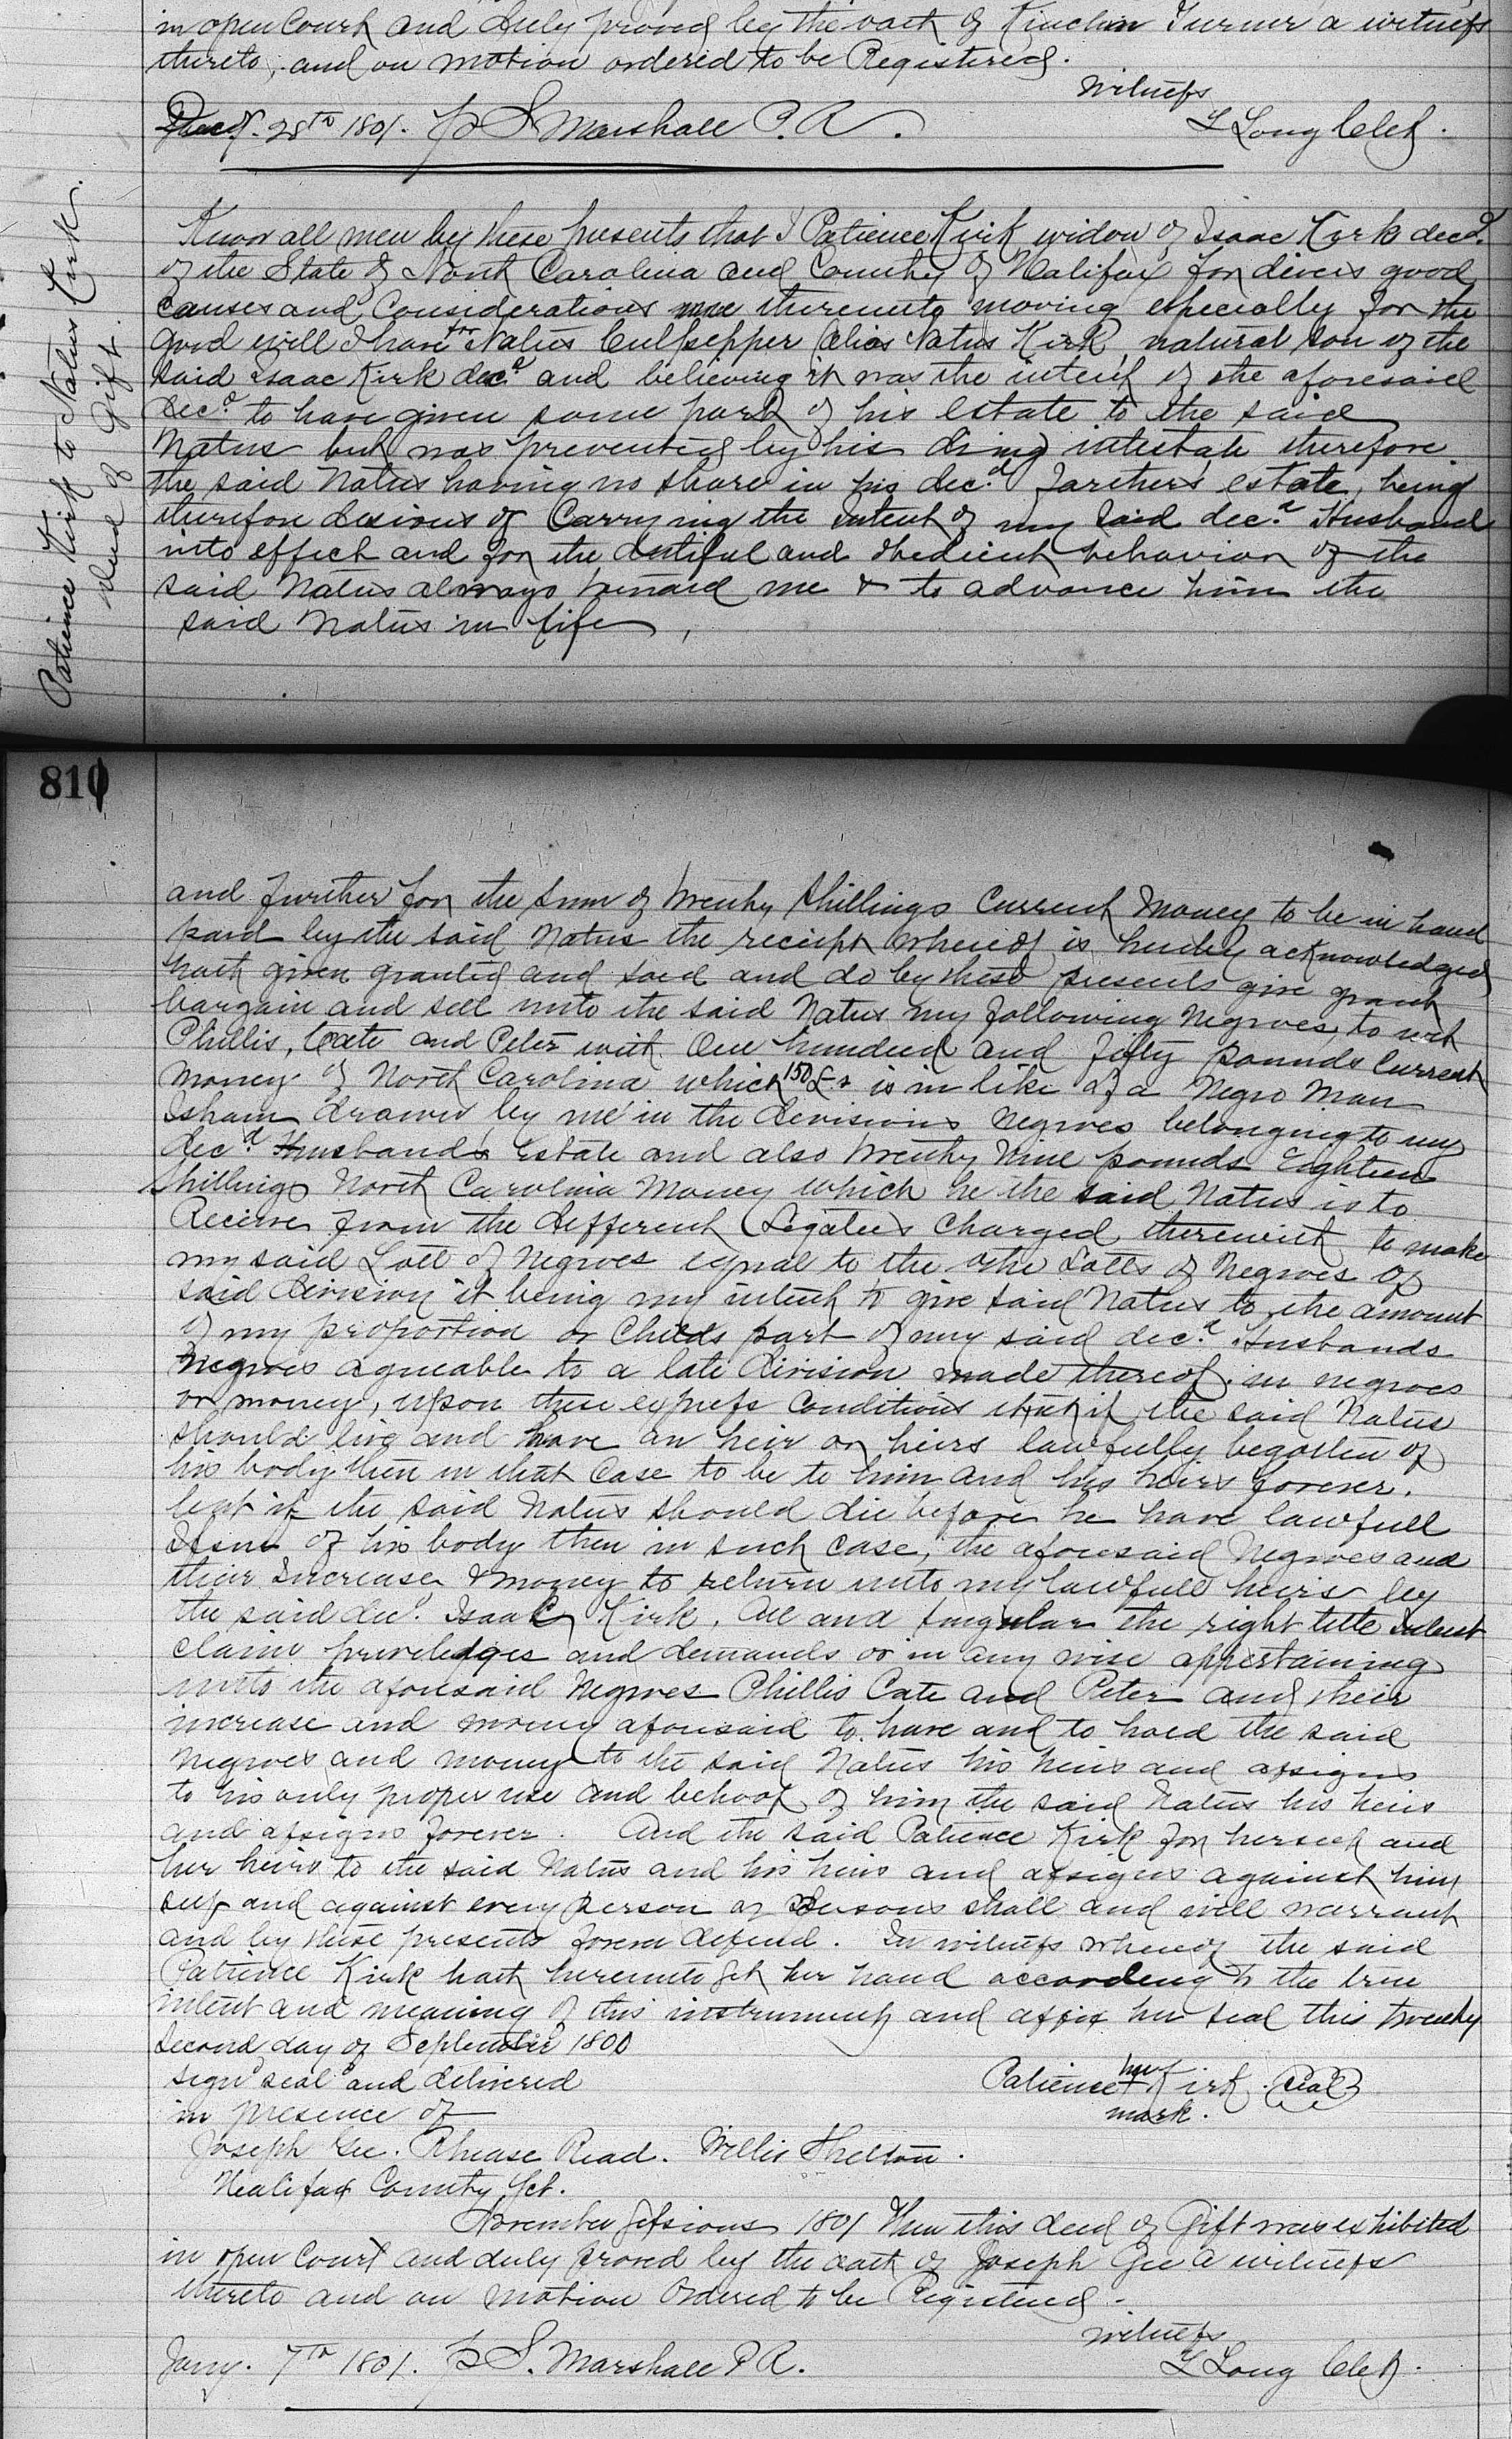 in open Court and duly proved by the oath of Kinchin Turner a witness
thereto, and on motion ordered to be Registered.
Witness
28th 1801. p S Marshall P. R.
L Long Clek.
Patience Kirk to Natus Kirk.
deed of Gift.
Know all men by these presents that I Patience Kirk widow of Isaac Kirk decd.
of the State of North Carolina and County of Halifax for divers good
causes and Considerations me thereunto moving especially for the
good will I have for Natus Culpepper (alias Natus Kirk, natural son of the
said Isaac Kirk decd and believing it was the intent of the aforesaid
decd to have given some part of his estate to the said
Natus but was prevented by his dying intestate therefore
the said Natus having no share in his decd Farther's estate, being
therefore desious of Carrying the intent of my said decd Husband
into effect and for the dutiful and obedient behavior of the
said Natus always toward me & to advance him the
said Natus in life,
810
and further for the sum of twenty shillings Current Money to be in hand
paid by the said Natus the receipt whereof is hereby acknowledged
hath given granted and sold and do by these presents give grant
bargain and sell unto the said Natus my following Negroes, to wit
Phillis, Cate and Peter with One hundred and fifty pounds Current
money of North Carolina which 150£s is in like of a Negro Man
Isham drawn by me in the devisions Negroes belonging to my
decd Husbands Estate and also twenty Nine pounds Eighteen
shillings North Carolina Money which he the said Natus is to
Receive from the different Legatees Charged therewith to make
my said Lott of Negroes equal to the othe Lotts of Negroes of
said division it being my intent to give said Natus to the amount
of my proportion or Childs part of my said decd Husbands
Negroes agreeable to a late division made thereof in negroes
or money, upon these express Conditions that if the said Natus
should live and have an heir or heirs lawfully begotten of
his body then in that Case to be to him and his heirs forever.
but if the said Natus should die before he have lawfull
Issue of his body then in such case, the aforesaid Negroes and
their Increase & money to return unto my lawfull heirs by
the said decd. Isaac Kirk. All and singular the right title Intrest
claim priveledges and demands or in any wise appertaining
unto the aforesaid Negroes Phillis Cate and Peter and their
increase and money aforesaid to have and to hold the said
negroes and money to the said Natus his heirs and assigns
to his only proper use and behoof of him the said Natus his heirs
and assigns forever. And the said Patience Kirk for herself and
her heirs to the said Natus and his heirs and assigns against him
self and against every person or Persons shall and will warrant
and by these presents forever defend. In witness whereof the said
Patience Kirk hath hereunto set her hand according to the true
intent and meaning of this instrument and affix her seal this twenty
second day of September 1800
sign seal and delivered
in presence of
Patience her + mark Kirk. (seal)
Joseph Gee. Rhease Read. Willis Shelton.
Halifax County Sct.
November Sessions 1801 Then this deed of Gift was exhibited
in open Court and duly proved by the oath of Joseph Gee a witness
thereto and on motion Ordered to be Registered.
Witness
Jany. 7th 1801. p S. Marshall P R.
L Long Clek.